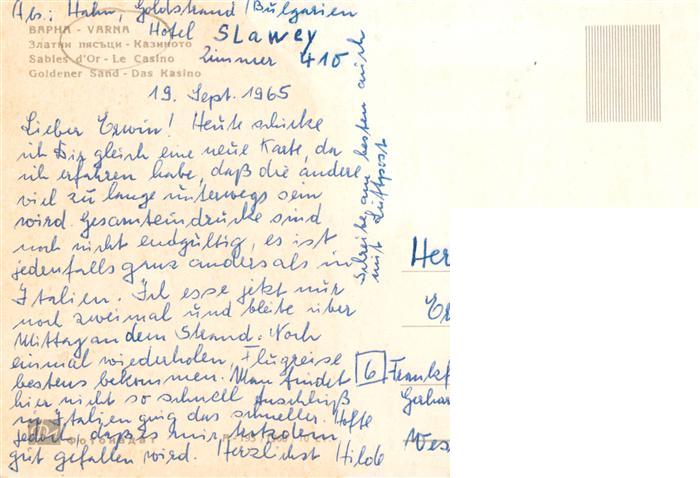 Abs.: Hahn, Goldstrand/Bulgarien
Hotel Slawey
Zimmer 410
ВАРНА - VARNA
Златни пясъци - Казиното
Sables d'Or - Le Casino
Goldener Sand - Das Kasino
19. Sept. 1965
Lieber Erwin! Heute schicke
ich Dir gleich eine neue Karte, da
ich erfahren habe, daß die andere
viel zu lange unterwegs sein
wird. Gesamteindrücke sind
noch nicht endgültig, es ist
jedenfalls ganz anders als in
Italien. Ich esse jetzt nur
noch zweimal und bleibe über
Mittag an dem Strand. Noch
einmal wiederholen, Flugreise
bestens bekommen. Man findet
hier nicht so schnell Anschluß
in Italien ging das schneller. Hoffe
jedoch, daß es mir trotzdem
gut gefallen wird. Herzlichst Hilde
Schreibe am besten auch
mit Luftpost
Her
Er
6 Frankf
Gerhar
Wes
Фотоиздат